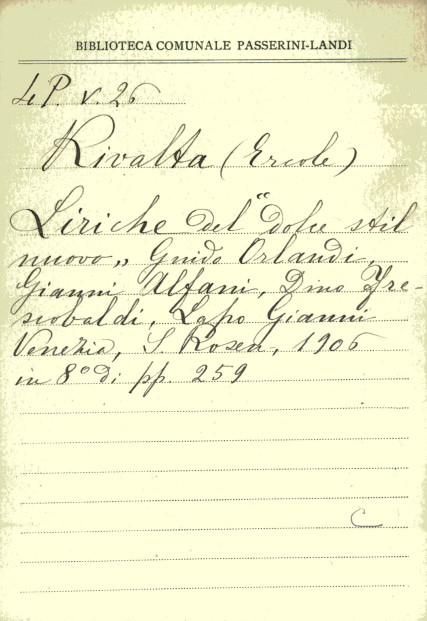 BIBLIOTECA COMUNALE PASSERINI-LANDI
4 P. V. 26
Rivalta (Ercole)
Liriche del "dolce stil
nuovo„ Guido Orlandi,
Gianni Alfani, Dino Fre-
scobaldi, Lapo Gianni
Venezia, S. Rosen, 1906
in 8° di pp. 259
C